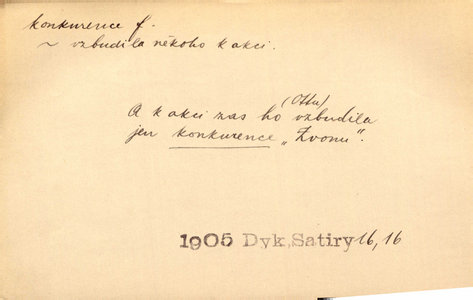 konkurence f.
~ vzbudila někoho k akci.
(Ottu)
A k akci zas ho vzbudila
jen konkurence „Zvonu".
1905 Dyk, Satiry 16, 16